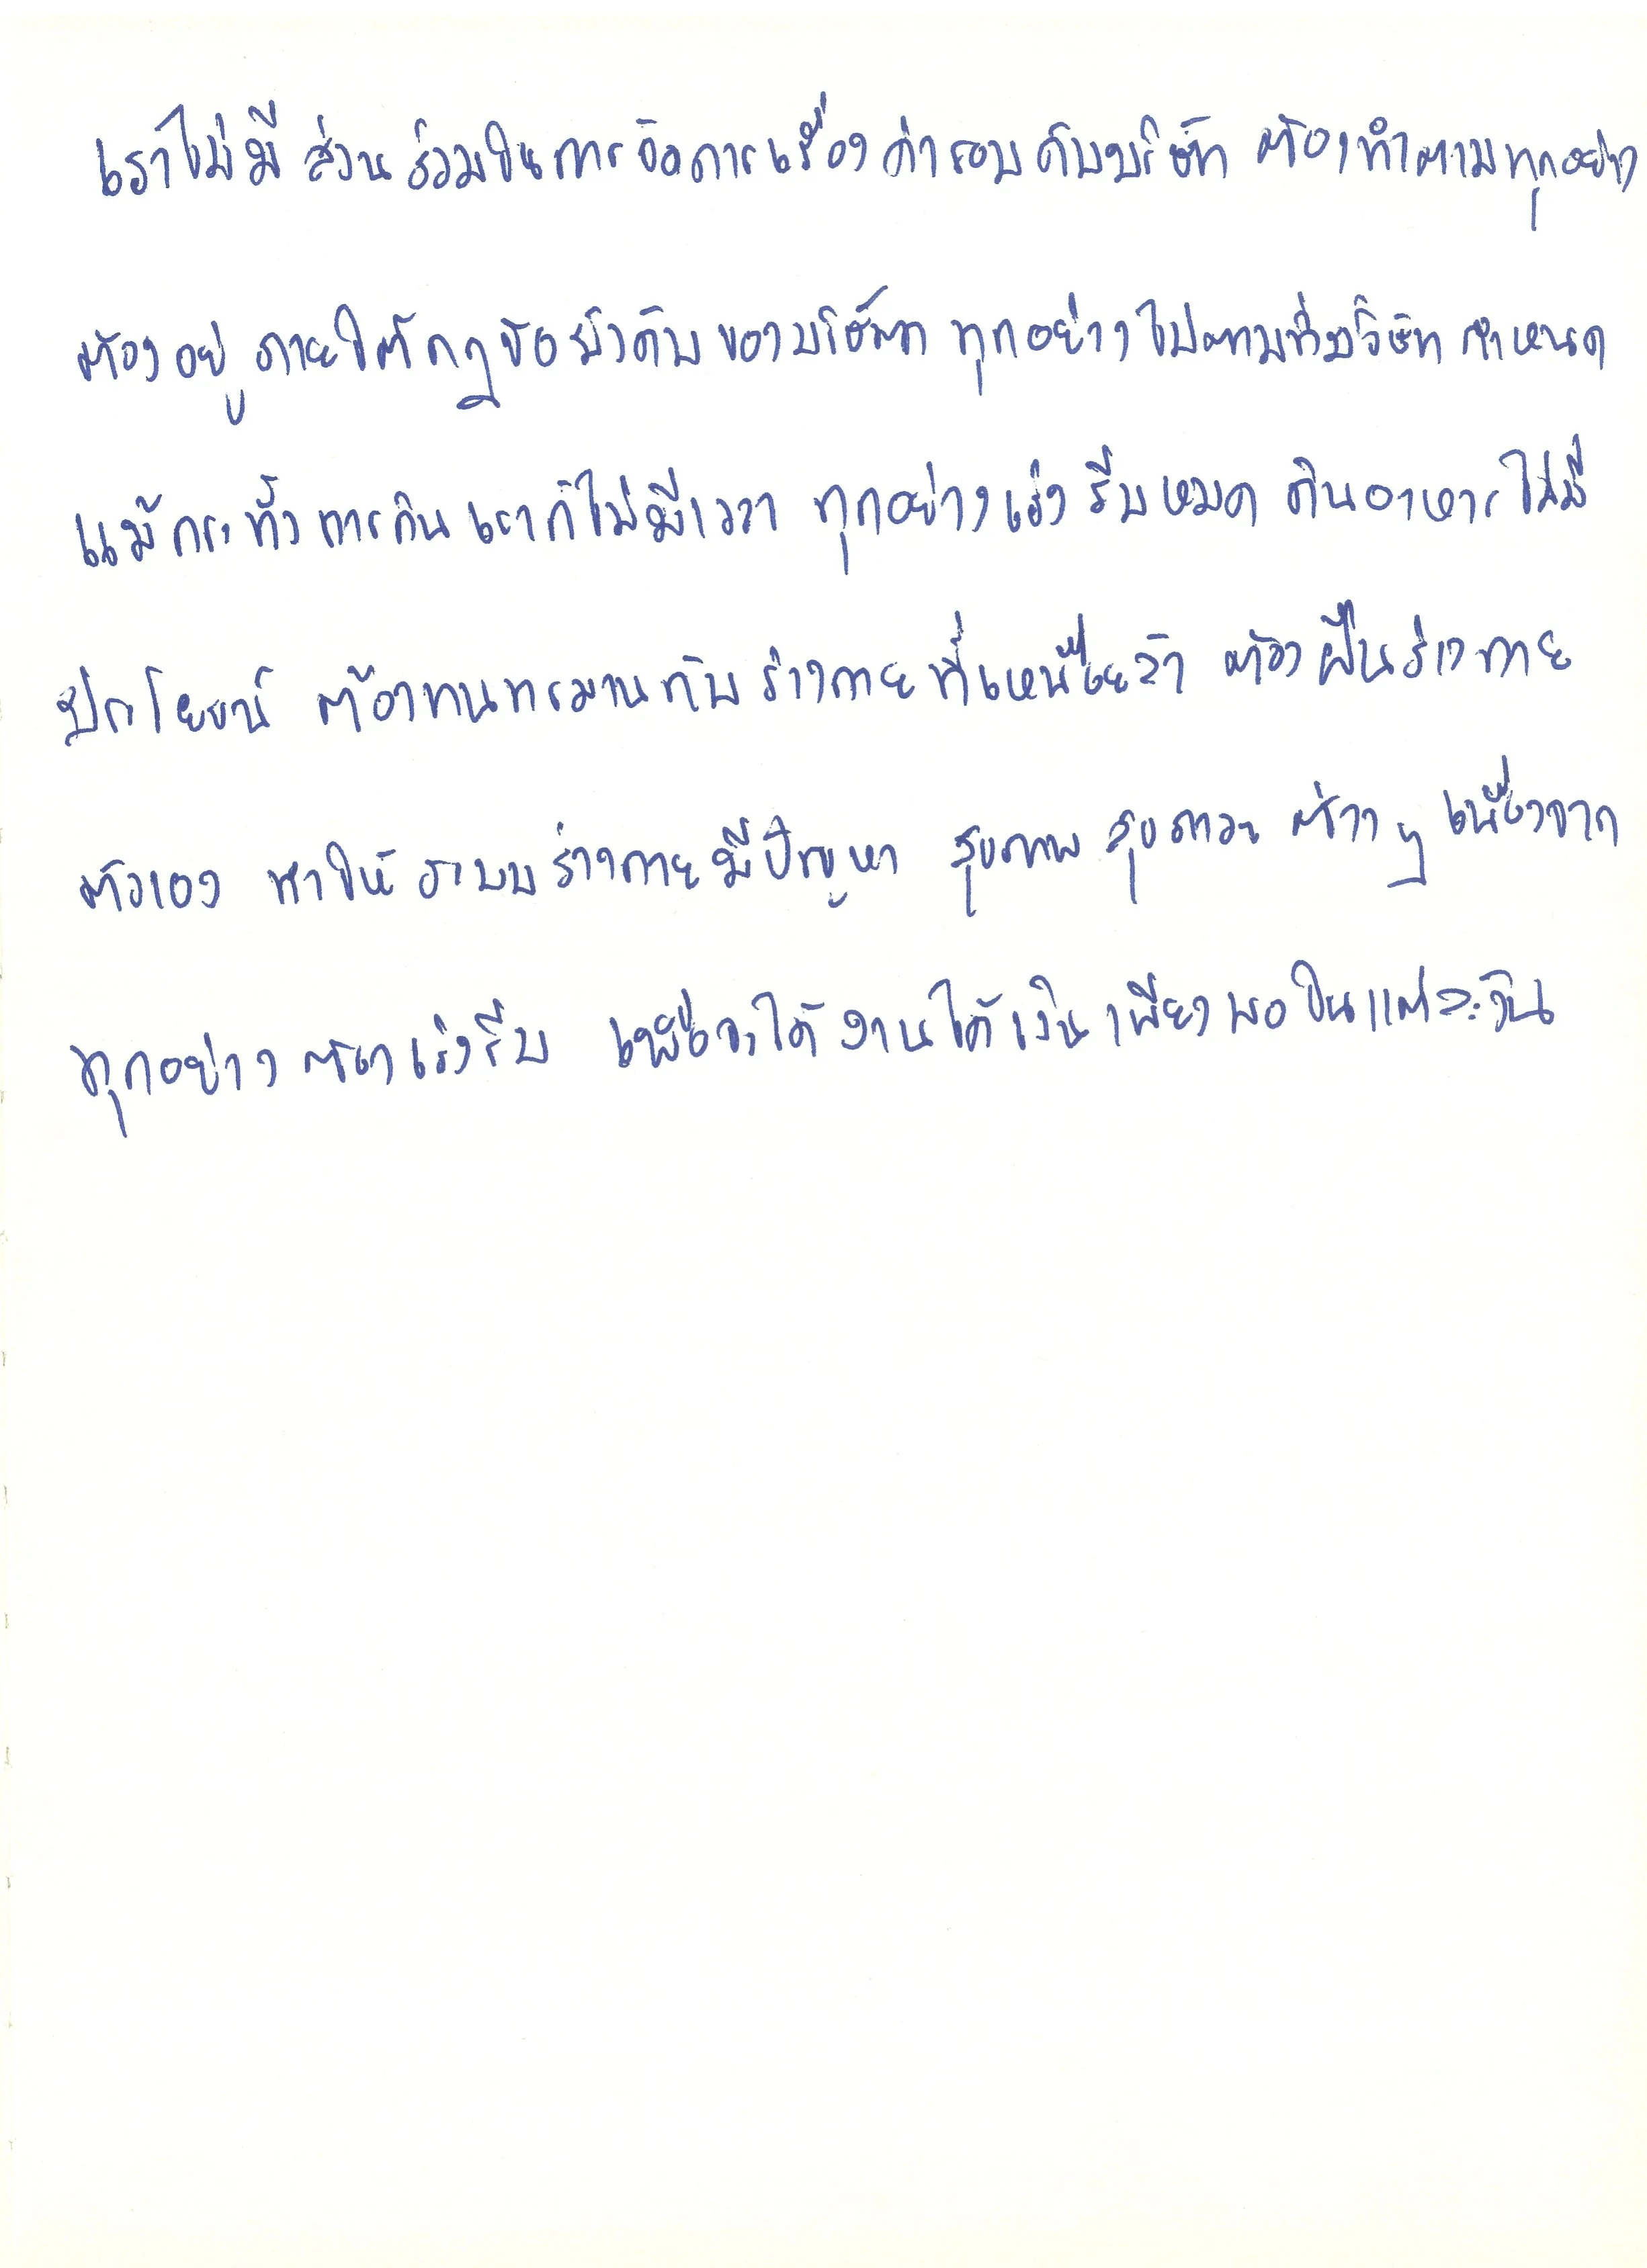 เราไม่มีส่วนร่วมในการจัดการเรื่องค่ารอบกับบริษัท ต้องทำตามทุกอย่าง
ต้องอยู่ภายใต้กฎข้อบังคับของบริษัท ทุกอย่างไปตามที่บริษัทกำหนด
แม้กระทั่งการกินเราก็ไม่มีเวลา ทุกอย่างเร่งรีบหมด กินอาหารไม่มี
ประโยชน์ ต้องทนทรมานกับร่างกายที่เหนื่อยล้า ต้องฝืนร่างกาย
ตัวเอง ทำให้ระบบร่างกายมีปัญหา สุขภาพ สุขภาวะ ต่างๆ เนื่องจาก
ทุกอย่างต้องเร่งรีบ เพื่อจะได้งานได้เงินเพียงพอในแต่ละวัน